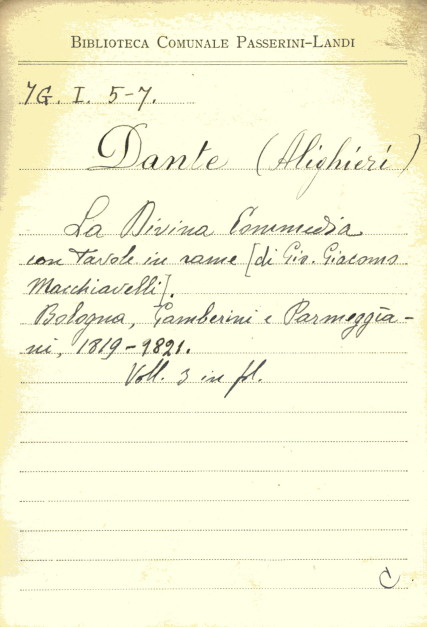 BIBLIOTECA COMUNALE PASSERINI-LANDI
7G. I. 5-7.
Dante (Alighieri)
La Divina Commedia
con Tavole in rame [di Gio. Giacomo
Macchiavelli].
Bologna, Gamberini e Parmeggia-
ni, 1819-1821.
Voll. 3 in fol.
C